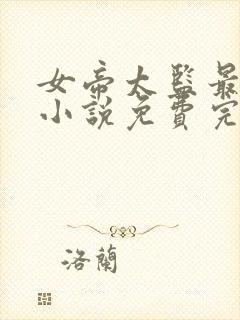 女帝太監最
小說免費完
洛蘭